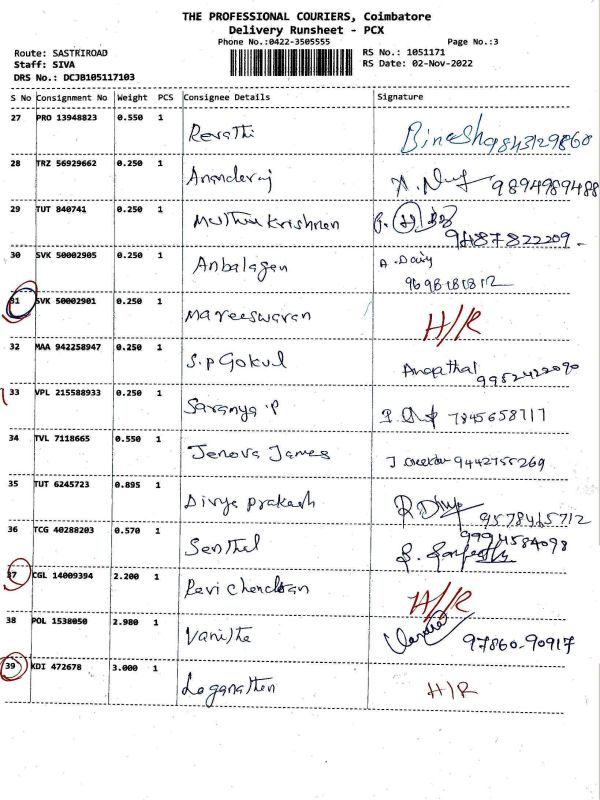 THE PROFESSIONAL COURIERS, Coimbatore
Delivery Runsheet - PCX
Phone No.:0422-3505555 Page No.:3
Route: SASTRIROAD RS No.: 1051171
Staff: SIVA RS Date: 02-Nov-2022
DRS No.: DCJB105117103
S No Consignment No Weight PCS Consignee Details Signature
27 PRO 13948823 0.550 1
Revathi Binesh 9843129860
28 TRZ 56929662 0.250 1
Ananderaj 9894989488
29 TUT 840741 0.250 1
Muthu Krishnan
9487822209
30 SVK 50002905 0.250 1
Anbalagan A. Daisy
9698181812
31 SVK 50002901 0.250 1
Mareeswaran H/R
32 MAA 942258947 0.250 1
S.P Gokul
9952422090
33 VPL 215588933 0.250 1
Saranya.P 7845658717
34 TVL 7118665 0.550 1
Jenova James 9442755269
35 TUT 6245723 0.895 1
Divya prakash R. Divya
9578465712
36 TCG 40288203 0.570 1 9994584098
Senthil
37 CGL 14009394 2.200 1
Ravi Chandran H/R
38 POL 1538050 2.980 1
Vanitha Vanitha 97860-90917
39 KDI 472678 3.000 1
Loganathan H/R